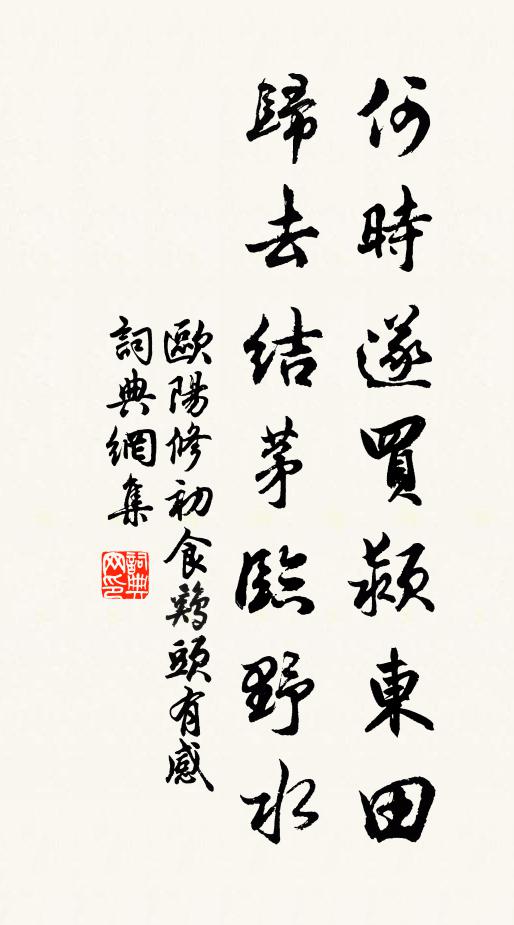 何時遂買潁東田
歸去結茅臨野水
歐陽修初食雞頭有感
詞典網集
詞典網印